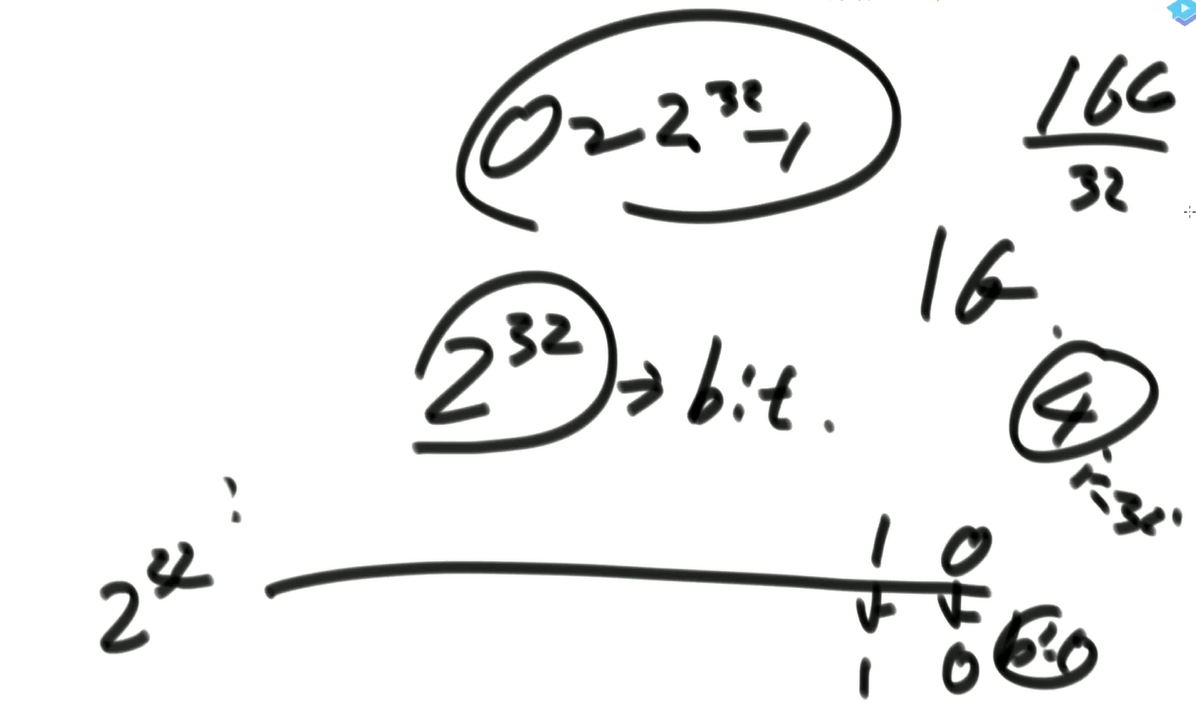 0~2³²-1
16G
32
1G
2³² → bit.
4
2³²
1 0
1 0 bit